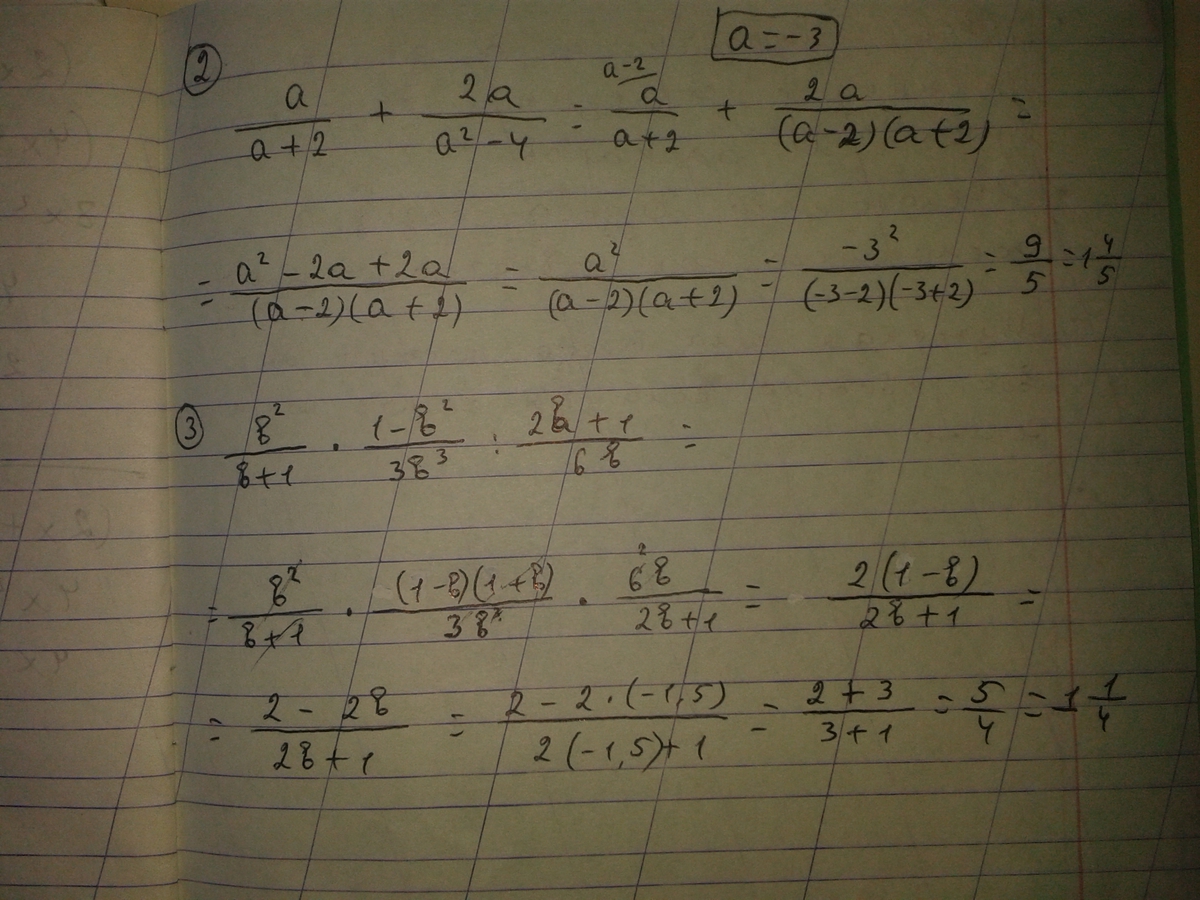 a = -3
② a/(a+2) + 2a/(a² - 4) = (a-2) a/(a+2) + 2a/((a-2)(a+2)) =
= (a² - 2a + 2a)/((a-2)(a+2)) = a²/((a-2)(a+2)) = -3²/((-3-2)(-3+2)) = 9/5 = 1 4/5
③ в²/(в+1) · (1-в²)/(3в³) : (2в+1)/(6в) =
= в²/(в+1) · ((1-в)(1+в))/(3в³) · 6в/(2в+1) = 2(1-в)/(2в+1) =
= (2 - 2в)/(2в+1) = (2 - 2·(-1,5))/(2(-1,5)+1) = (2+3)/(3+1) = 5/4 = 1 1/4